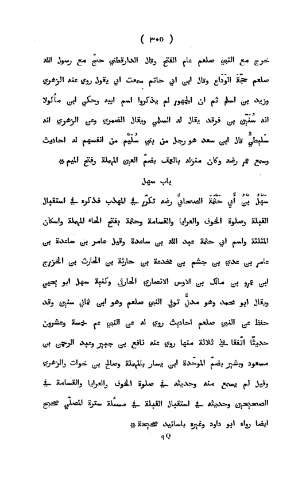 ( ٣٠٥ )
خرج مع النبي صلعم عام الفتح وقال الدارقطني حج مع رسول الله
صلعم حجة الوداع وقال ابن ابي حاتم سمعت ابي يقول روي عنه الزهري
وزيد بن اسلم ثم ان الجمهور لم يذكروا اسم ابيه وحكي ابن ماكولا
انه سُنَيْن بن فرقد يقال له السلمي ويقال الضمري وعن الزهري انه
سليطيّ قال ابن سعد هو رجل من بني سُلَيم من انفسهم له احاديث
وسمع عمر رضه وكان منزله بالعمف بضمّ العين المهملة وفتح الميم *
باب سهل
سَهْل بْنُ أَبِي حَثْمَة الصحابيّ رضه تكرّر في المهذب فذكره في استقبال
القبلة وصلوة الخوف والعرايا والقسامة وحثمة بفتح الحاء المهملة واسكان
المثلثة واسم ابي حثمة عبد الله بن ساعدة وقيل عامر بن ساعدة بن
عامر بن عدي بن جشم بن مجدعة بن حارثة بن الحارث بن الخزرج
ابن عمرو بن مالك بن الاوس الانصاري الحارثي وكنية سهل ابو يحيي
ويقال ابو محمد وهو مدنيّ توفي النبي صلعم وهو ابن ثماني سنين وقد
حفظ عن النبي صلعم احاديث روي له عن النبي عم خمسة وعشرين
حديثًا اتفقا في ثلاثة منها روي عنه نافع بن جبير وعبد الرحمن بن
مسعود وبشير بضمّ الموحّدة ابن يسار بالمهملة وصالح بن خوات والزهري
وقيل لم يسمع منه وحديثه في صلوة الخوف والعرايا والقسامة في
الصحيحين وحديثه في استقبال القبلة في مسئلة سترة المصلّي صحيح
ايضا رواه ابو داود وغيره باسانيد صحيحة *